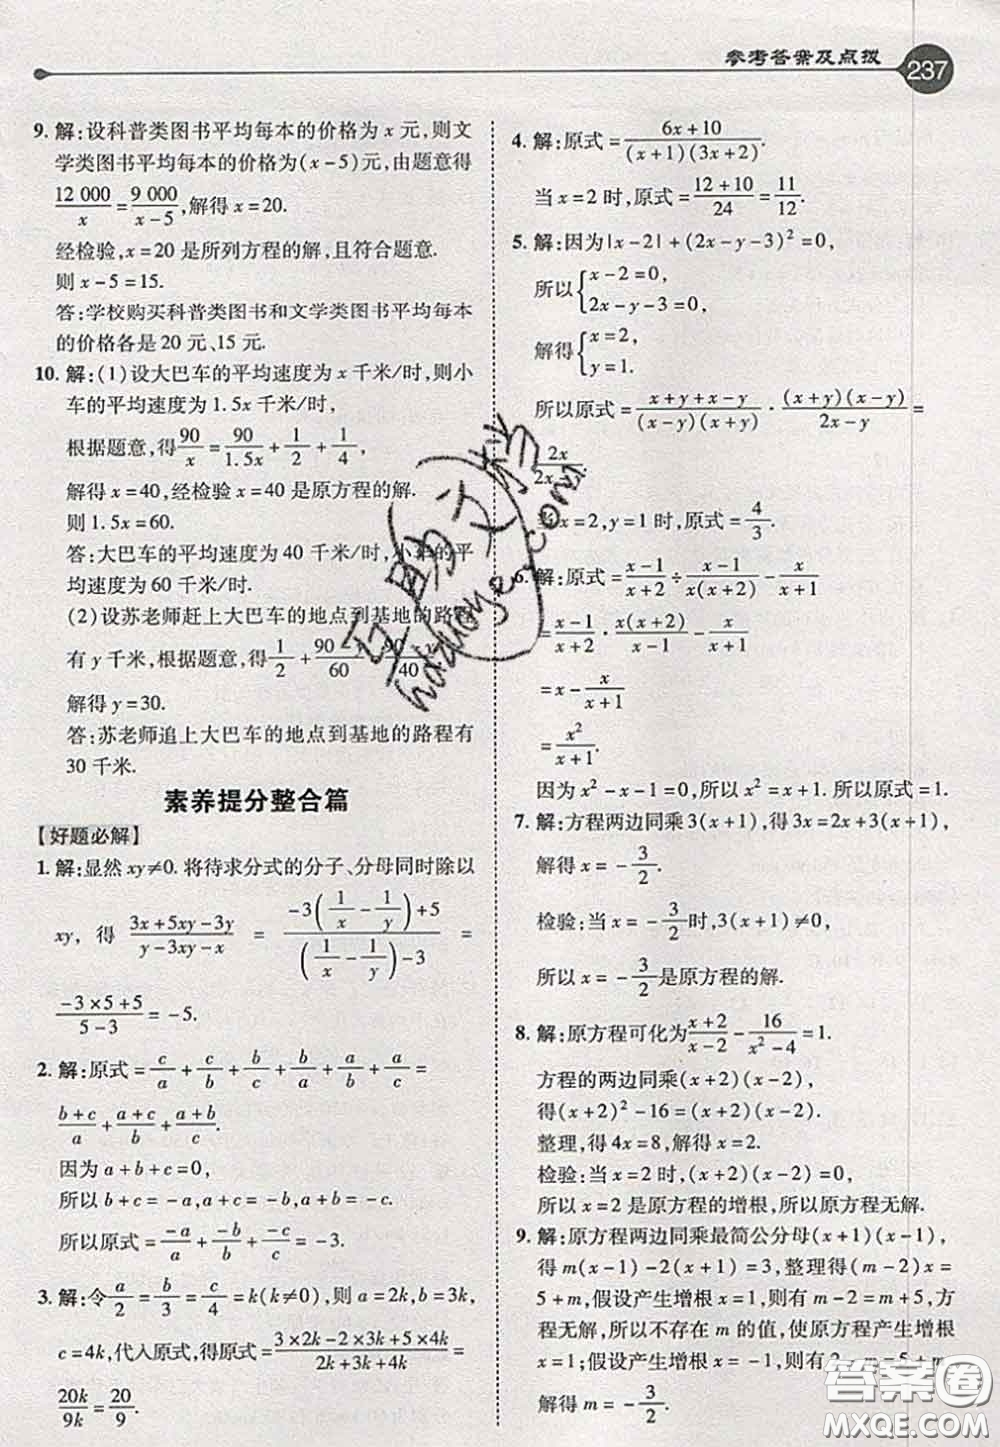 参考答案及点拨
237
9. 解:设科普类图书平均每本的价格为 x 元,则文
学类图书平均每本的价格为(x-5)元,由题意得
12 000/x = 9 000/(x-5),解得 x=20.
经检验,x=20 是所列方程的解,且符合题意.
则 x-5=15.
答:学校购买科普类图书和文学类图书平均每本
的价格各是 20 元、15 元.
10. 解:(1)设大巴车的平均速度为 x 千米/时,则小
车的平均速度为 1.5x 千米/时,
根据题意,得 90/x = 90/1.5x + 1/2 + 1/4,
解得 x=40,经检验 x=40 是原方程的解.
则 1.5x=60.
答:大巴车的平均速度为 40 千米/时,小车的平
均速度为 60 千米/时.
(2)设苏老师赶上大巴车的地点到基地的路程
有 y 千米,根据题意,得 1/2 + 90- /60 = 90- /40
解得 y=30.
答:苏老师追上大巴车的地点到基地的路程有
30 千米.
素养提分整合篇
【好题必解】
1. 解:显然 xy≠0. 将待求分式的分子、分母同时除以
xy, 得 (3x+5xy-3y)/(y-3xy-x) = (-3(1/x - 1/y)+5)/((1/x - 1/y)-3) =
(-3×5+5)/(5-3) = -5.
2. 解:原式 = c/a + c/b + b/c + b/a + a/c + a/b =
(b+c)/a + (a+c)/b + (a+b)/c.
因为 a+b+c=0,
所以 b+c=-a,a+c=-b,a+b=-c.
所以原式 = -a/a + -b/b + -c/c = -3.
3. 解:令 a/2 = b/3 = c/4 = k(k≠0),则 a=2k,b=3k,
c=4k,代入原式,得原式 = (3×2k-2×3k+5×4k)/(2k+3k+4k) =
20k/9k = 20/9.
4. 解:原式 = (6x+10)/((x+1)(3x+2)).
当 x=2 时,原式 = (12+10)/24 = 11/12.
5. 解:因为|x-2|+(2x-y-3)²=0,
所以{x-2=0,
2x-y-3=0,
解得{x=2,
y=1.
所以原式 = (x+y+x-y)/((x-y)(x+y)) · ((x+y)(x-y))/(2x-y) =
2x/2x-
当 x=2,y=1 时,原式 = 4/3.
6. 解:原式 = (x-1)/(x+2) ÷ (x-1)/(x(x+2)) - x/(x+1)
= (x-1)/(x+2) · x(x+2)/(x-1) - x/(x+1)
= x - x/(x+1)
= x²/(x+1).
因为 x²-x-1=0,所以 x²=x+1. 所以原式=1.
7. 解:方程两边同乘 3(x+1),得 3x=2x+3(x+1),
解得 x = -3/2.
检验:当 x = -3/2 时,3(x+1)≠0,
所以 x = -3/2 是原方程的解.
8. 解:原方程可化为 (x+2)/(x-2) - 16/(x²-4) = 1.
方程的两边同乘(x+2)(x-2),
得(x+2)²-16=(x+2)(x-2).
整理,得 4x=8,解得 x=2.
检验:当 x=2 时,(x+2)(x-2)=0,
所以 x=2 是原方程的增根,所以原方程无解.
9. 解:原方程两边同乘最简公分母(x+1)(x-1),
得 m(x-1)-2(x+1)=3,整理得(m-2)x=
5+m,假设产生增根 x=1,则有 m-2=m+5,方程
方程无解,所以不存在 m 的值,使原方程产生增根
x=1;假设产生增根 x=-1,则有 2-m=5+m,
解得 m = -3/2.
互助文档
hdzuoye.com
答案圈
MXQE.COM